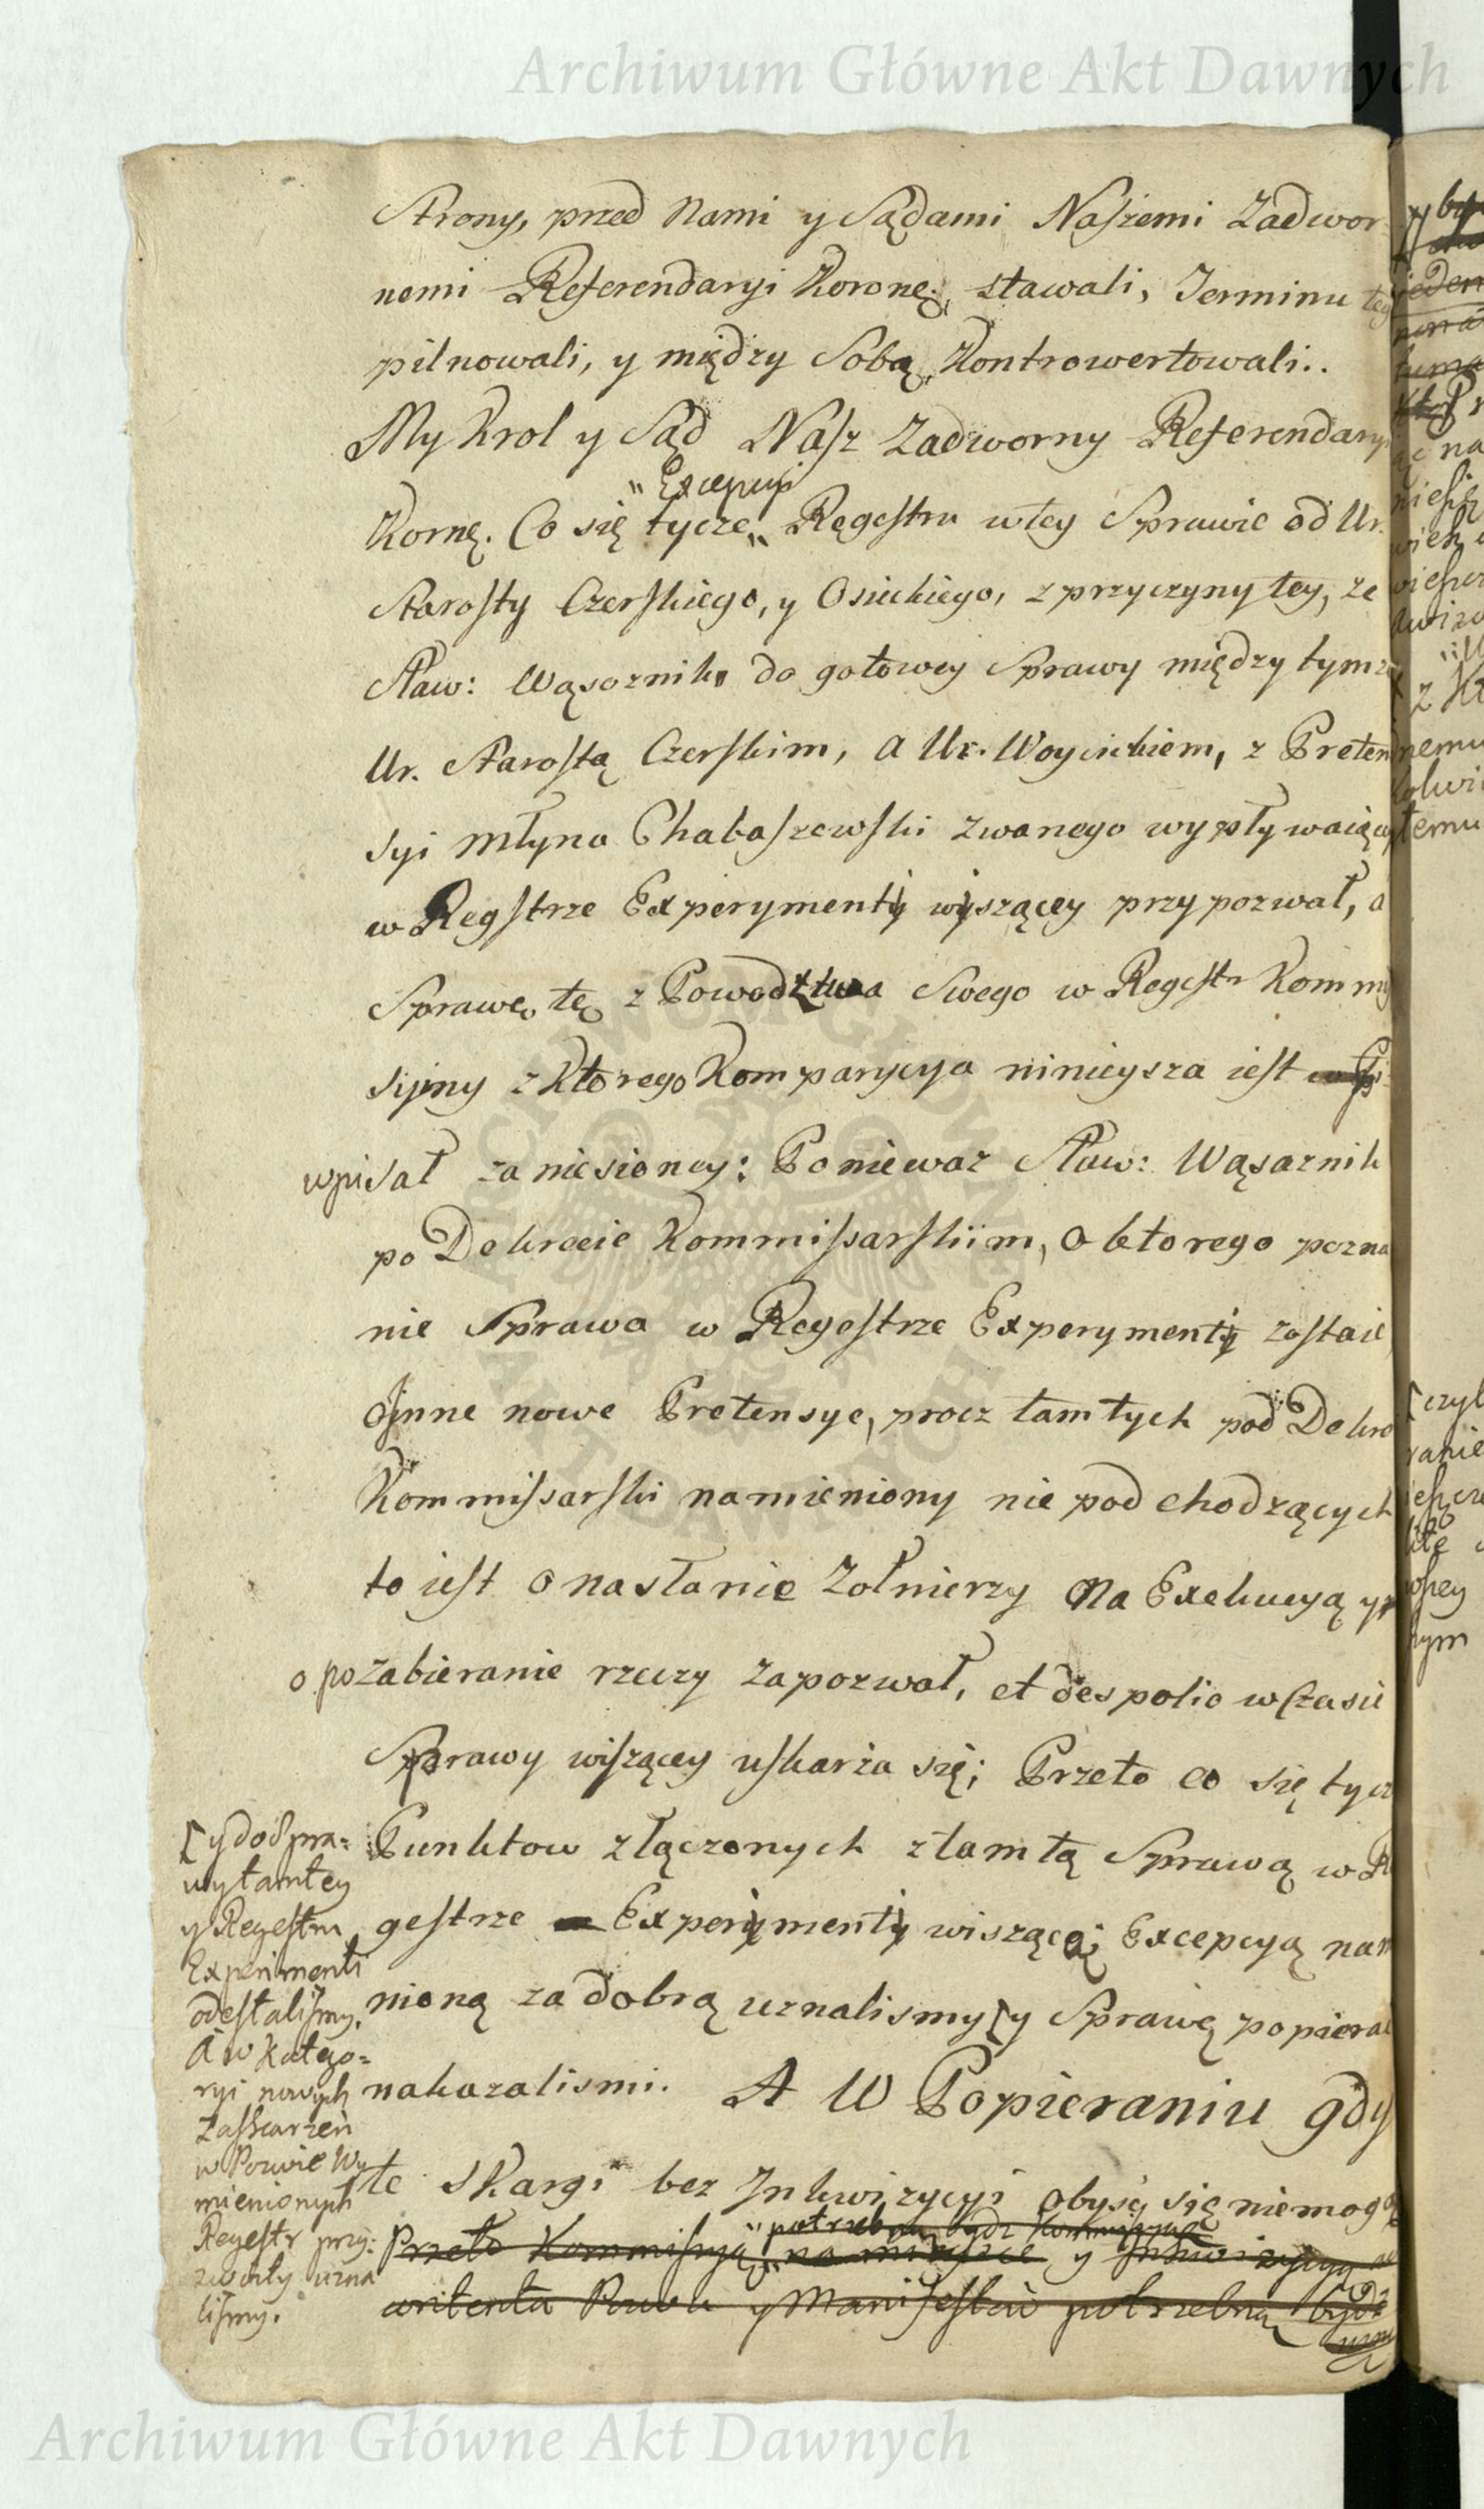 Archiwum Główne Akt Dawnych
Strony, przed Nami y Sądami Naszemi Zadwor
nemi Referendaryi Koronę. stawali, Terminu tey
pilnowali, y między Sobą Kontrowertowali..
My Krol y Sąd Nasz Zadworny Referendary
Excepcyi
Kornę. Co się tycze Regestru w tey Sprawie od Ur.
Starosty Czerskiego, y Osieckiego, z przyczyny tey, ze
Sław: Wąsoznik do gotowey Sprawy między tymze
Ur. Starostą Czerskim, a Ur. Woyickiem, z Preten
syi Młyna Chabaszewski zwanego wypływaiącey
w Regstrze Experymenti wiszącey przypozwał, a
Sprawę tę z Powodztwa Swego w Regestr Kommi
syiny z ktorego Komparycya ninieysza iest
wpisał zaniesioney: Poniewaz Sław: Wąsaznik
po Dekrecie Kommissarskiim, o ktorego pozna
nie Sprawa w Regestrze Experymenti zostaie
Jnne nowe Pretensye, procz tamtych pod Dekre
Kommissarski namieniony nie pod chodzących
to iest o nasłanie Zołnierzy Na Exekucyą y
o pozabieranie rzeczy zapozwał, et de spolio w Czasie
Sprawy wiszącey uskarza się; Przeto co się tycz
Punktow złączonych z tamtą Sprawą w Re
gestrze Experimenti wiszącą; Excepcyą nam
nioną za dobrą uznalismy [y Sprawę popierac
nakazalismi. A W Popieraniu gdy
te skargi bez Jnkwizycyi obyść się niemogą
potrzebną bydz Kommissyą
Przeto Kommissyą na mieysce y Jnkwizycyą
contenta Pozwu y Manifestu potrzebną bydz
uzna
[y do Spra=
wy tamtey
y Regestru
Experimenti
odesłalismy,
A w katego=
ryi nowych
Zaskarzeń
w Pozwie Wy
mienionych
Regestr przy:
zwoity uzna
lismy.
Archiwum Główne Akt Dawnych